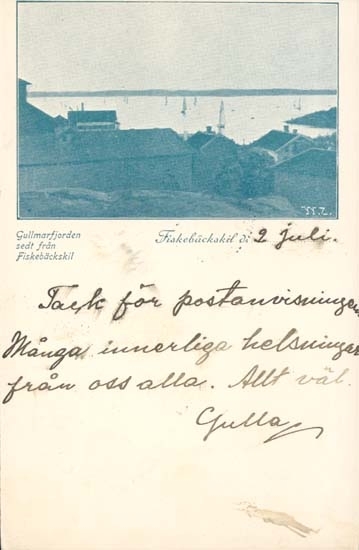 W.Z.
Gullmarfjorden
sedt från
Fiskebäckskil
Fiskebäckskil d. 2 juli.
Tack för postanvisningen
Många innerliga helsningar
från oss alla. Allt väl.
Gulla